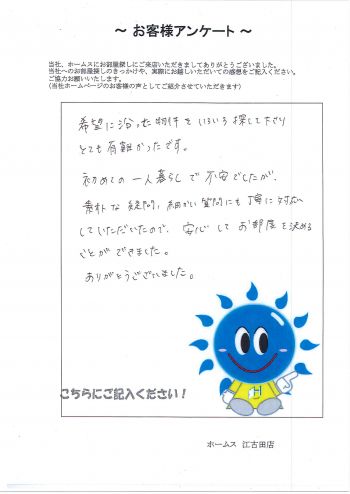 ～ お客様アンケート ～
当社、ホームスにお部屋探しにご来店いただきましてありがとうございました。
当社へのお部屋探しのきっかけや、実際にお越しいただいての感想をご記入ください。
ご協力お願いいたします。
(当社ホームページのお客様の声としてご紹介させていただきます)
希望に沿った物件をいろいろ探して下さり
とても有難かったです。
初めての一人暮らしで不安でしたが、
素朴な疑問、細かい質問にも丁寧に対応
していただいたので、安心してお部屋を決める
ことができました。
ありがとうございました。
H
こちらにご記入ください！
ホームス 江古田店